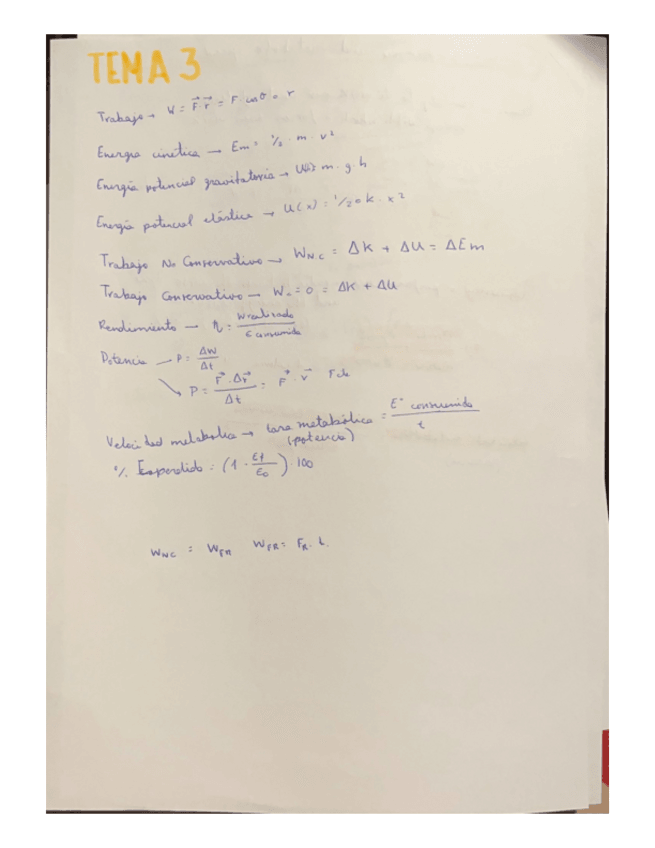 TEMA 3
Trabajo → W = F⃗·r⃗ = F·cosθ·r
Energía cinética → Em = 1/2 · m · v²
Energía potencial gravitatoria → m · g · h
Energía potencial elástica → U(x) = 1/2 · k · x²
Trabajo No Conservativo → W_NC = ΔK + ΔU = ΔEm
Trabajo Conservativo → = 0 = ΔK + ΔU
Rendimiento → η = W realizado / E consumida
Potencia → P = ΔW / Δt
↘ P = F⃗·Δr⃗ / Δt = F⃗ · v⃗
Velocidad metabólica → tasa metabólica (potencia) = Eª consumida / t
% E perdida = (1 - Ef / E₀) · 100
W_NC = W_FR W_FR = F_R · L